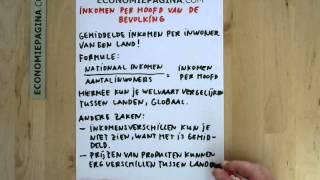 ECONOMIEPAGINA.COM
ECONOMIEPAGINA.COM
INKOMEN PER HOOFD VAN DE
BEVOLKING
GEMIDDELDE INKOMEN PER INWONER
VAN EEN LAND!
FORMULE:
NATIONAAL INKOMEN
AANTAL INWONERS
= INKOMEN
PER HOOFD
HIERMEE KUN JE WELVAART VERGELIJKEN
TUSSEN LANDEN, GLOBAAL.
ANDERE ZAKEN:
- INKOMENSVERSCHILLEN KUN JE
NIET ZIEN, WANT HET IS GEMID-
DELD.
- PRIJZEN VAN PRODUCTEN KUNNEN
ERG VERSCHILLEN TUSSEN LANDEN